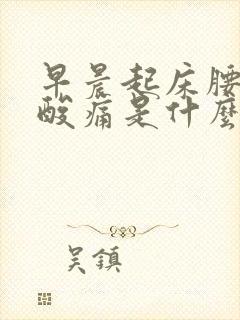 早晨起床腰
酸痛是什麼
吴鎮